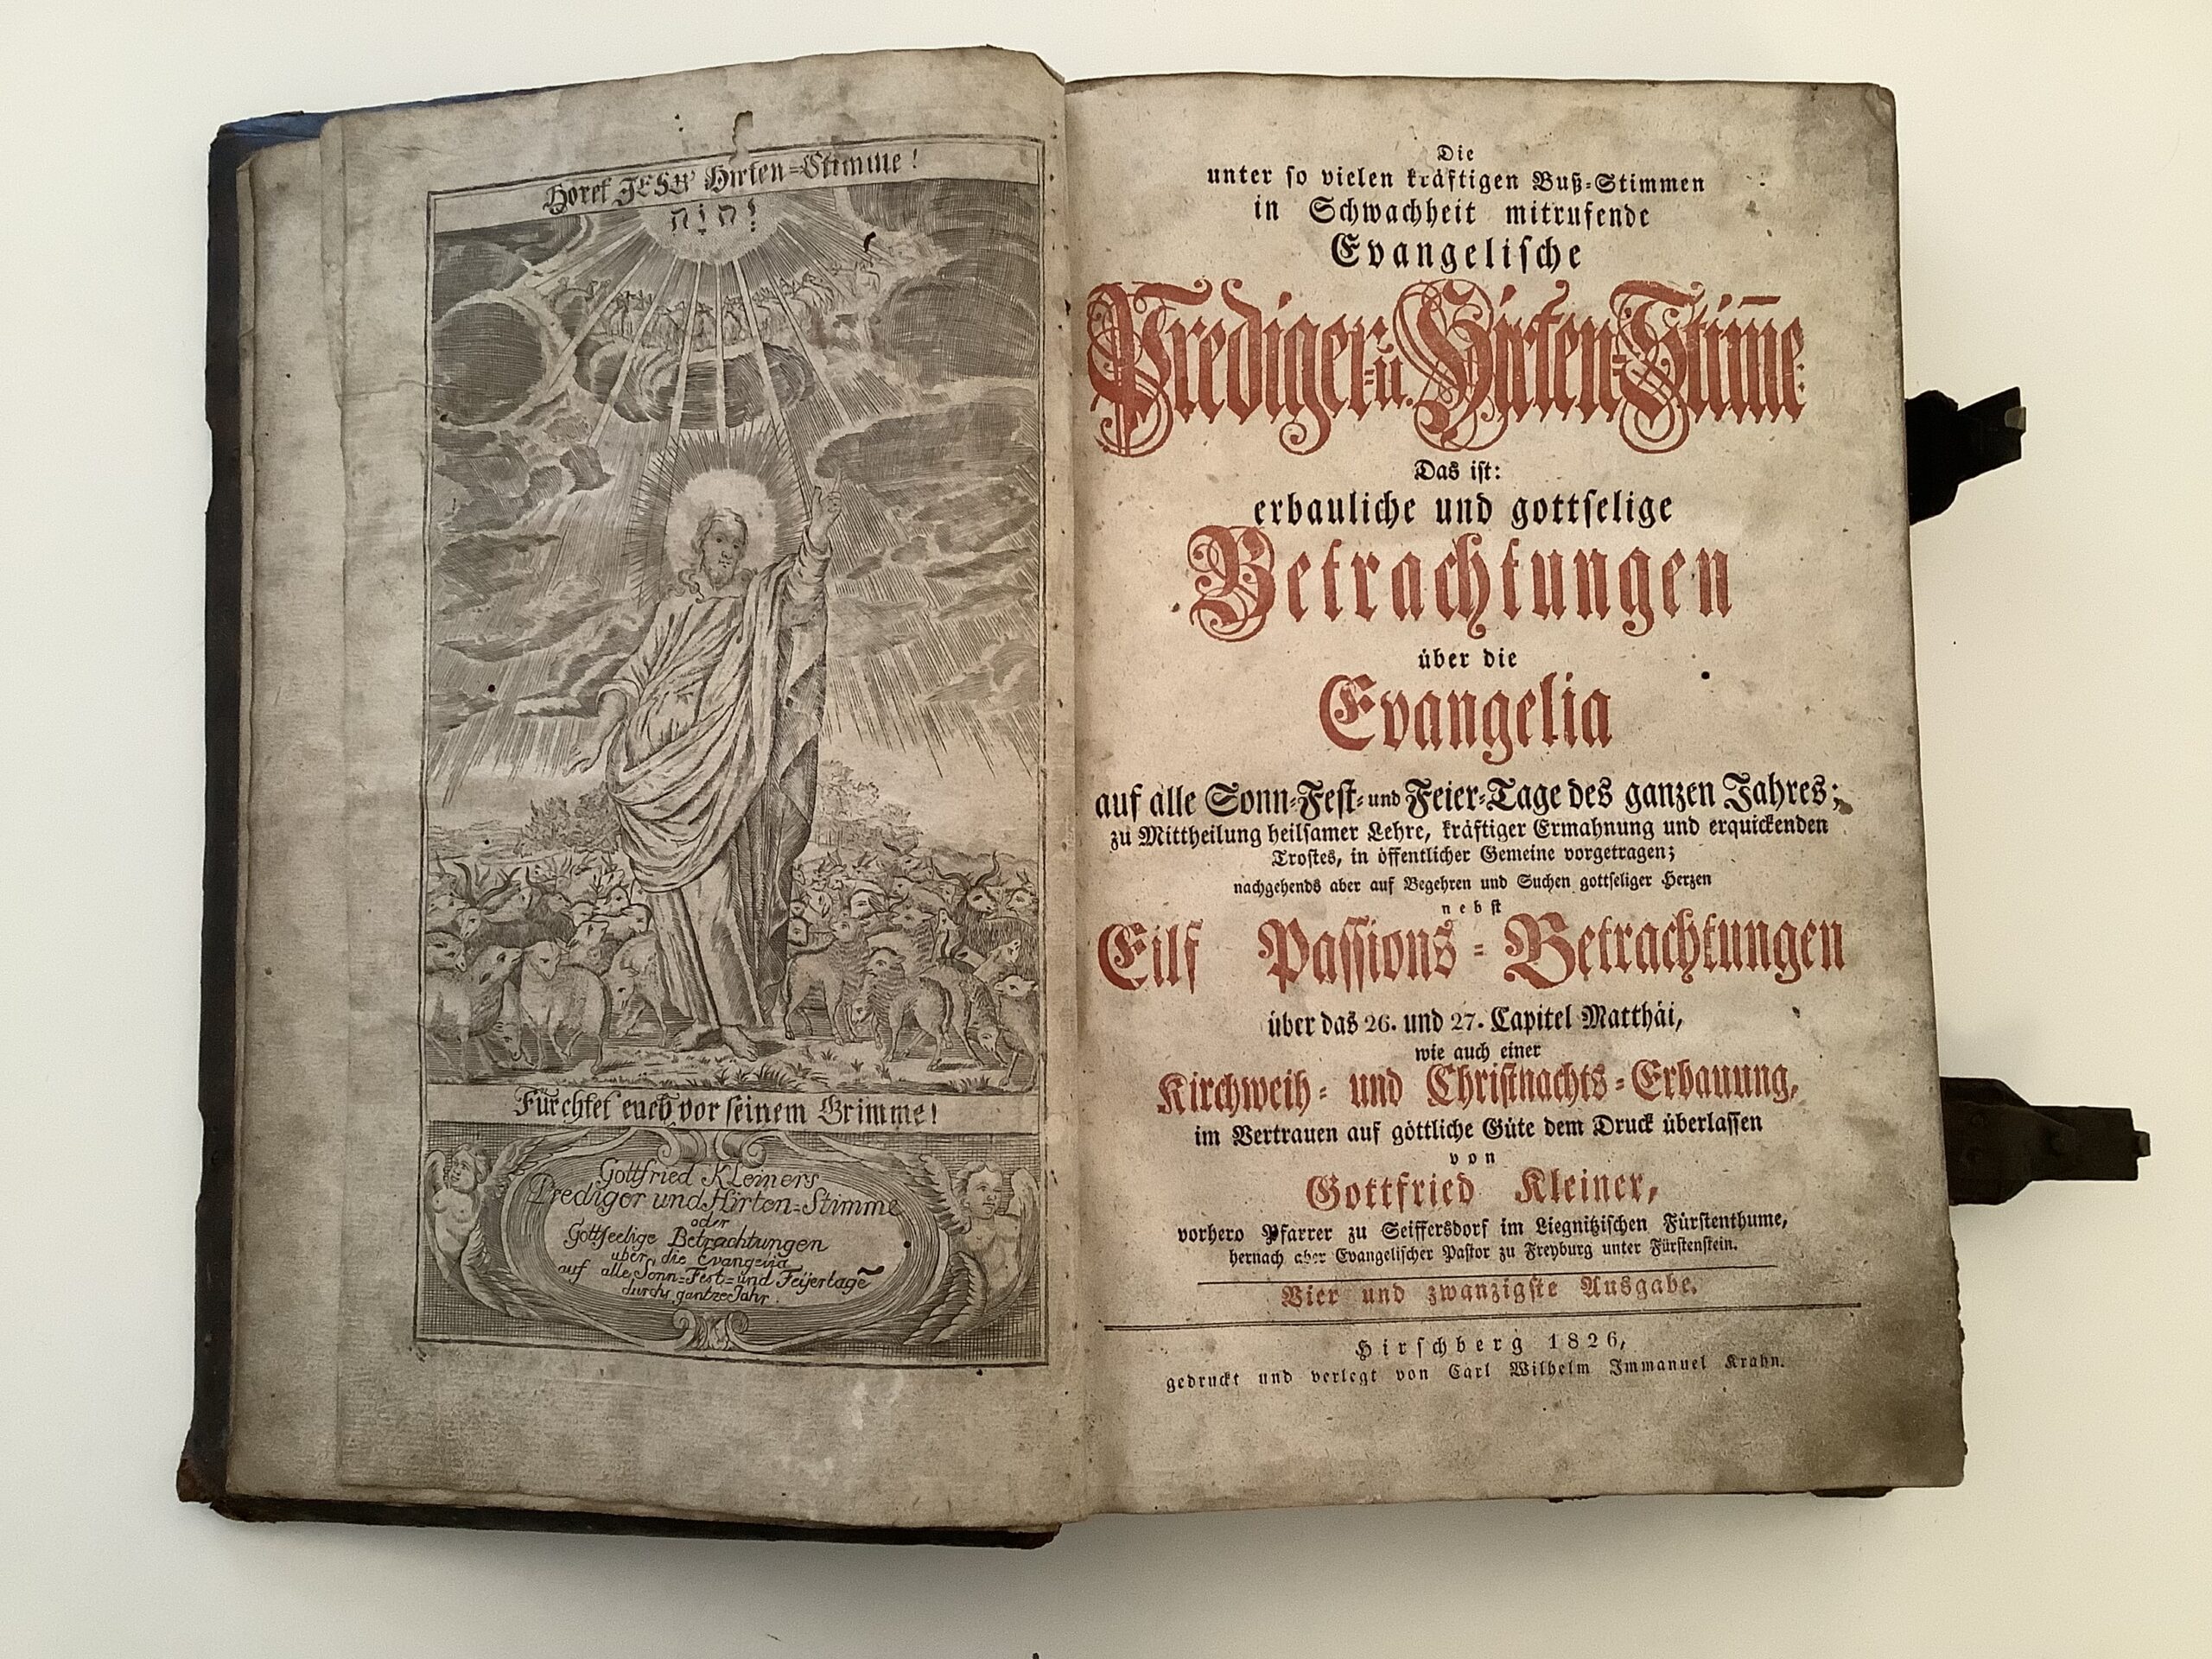 Höret JESU Hirten=Stimme!
יהוה
Fürchtet euch vor seinem Grimme!
Gottfried Kleiners
Prediger und Hirten=Stimme
oder
Gottseelige Betrachtungen
uber die Evangelia
auf alle Sonn=Fest=und Feijertage
durchs gantze Jahr.
Die
unter so vielen kräftigen Buß=Stimmen
in Schwachheit mitrufende
Evangelische
Prediger=u. Hirten=Stim̄e
Das ist:
erbauliche und gottselige
Betrachtungen
über die
Evangelia
auf alle Sonn=Fest=und Feier=Tage des ganzen Jahres;
zu Mittheilung heilsamer Lehre, kräftiger Ermahnung und erquickenden
Trostes, in öffentlicher Gemeine vorgetragen;
nachgehends aber auf Begehren und Suchen gottseliger Herzen
nebst
Eilf Passions=Betrachtungen
über das 26. und 27. Capitel Matthäi,
wie auch einer
Kirchweih= und Christnachts=Erbauung,
im Vertrauen auf göttliche Güte dem Druck überlassen
von
Gottfried Kleiner,
vorhero Pfarrer zu Seiffersdorf im Liegnitzischen Fürstenthume,
hernach aber Evangelischer Pastor zu Freyburg unter Fürstenstein.
Vier und zwanzigste Ausgabe.
Hirschberg 1826,
gedruckt und verlegt von Carl Wilhelm Immanuel Krahn.